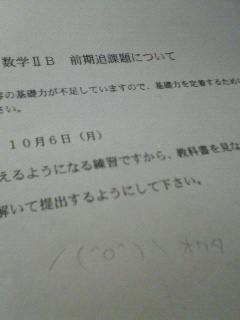 数学ⅡB 前期追課題について
の基礎力が不足していますので、基礎力を定着するために
さい。
10月6日(月)
えるようになる練習ですから、教科書を見な
解いて提出するようにして下さい。
\(^o^)/ オワタ